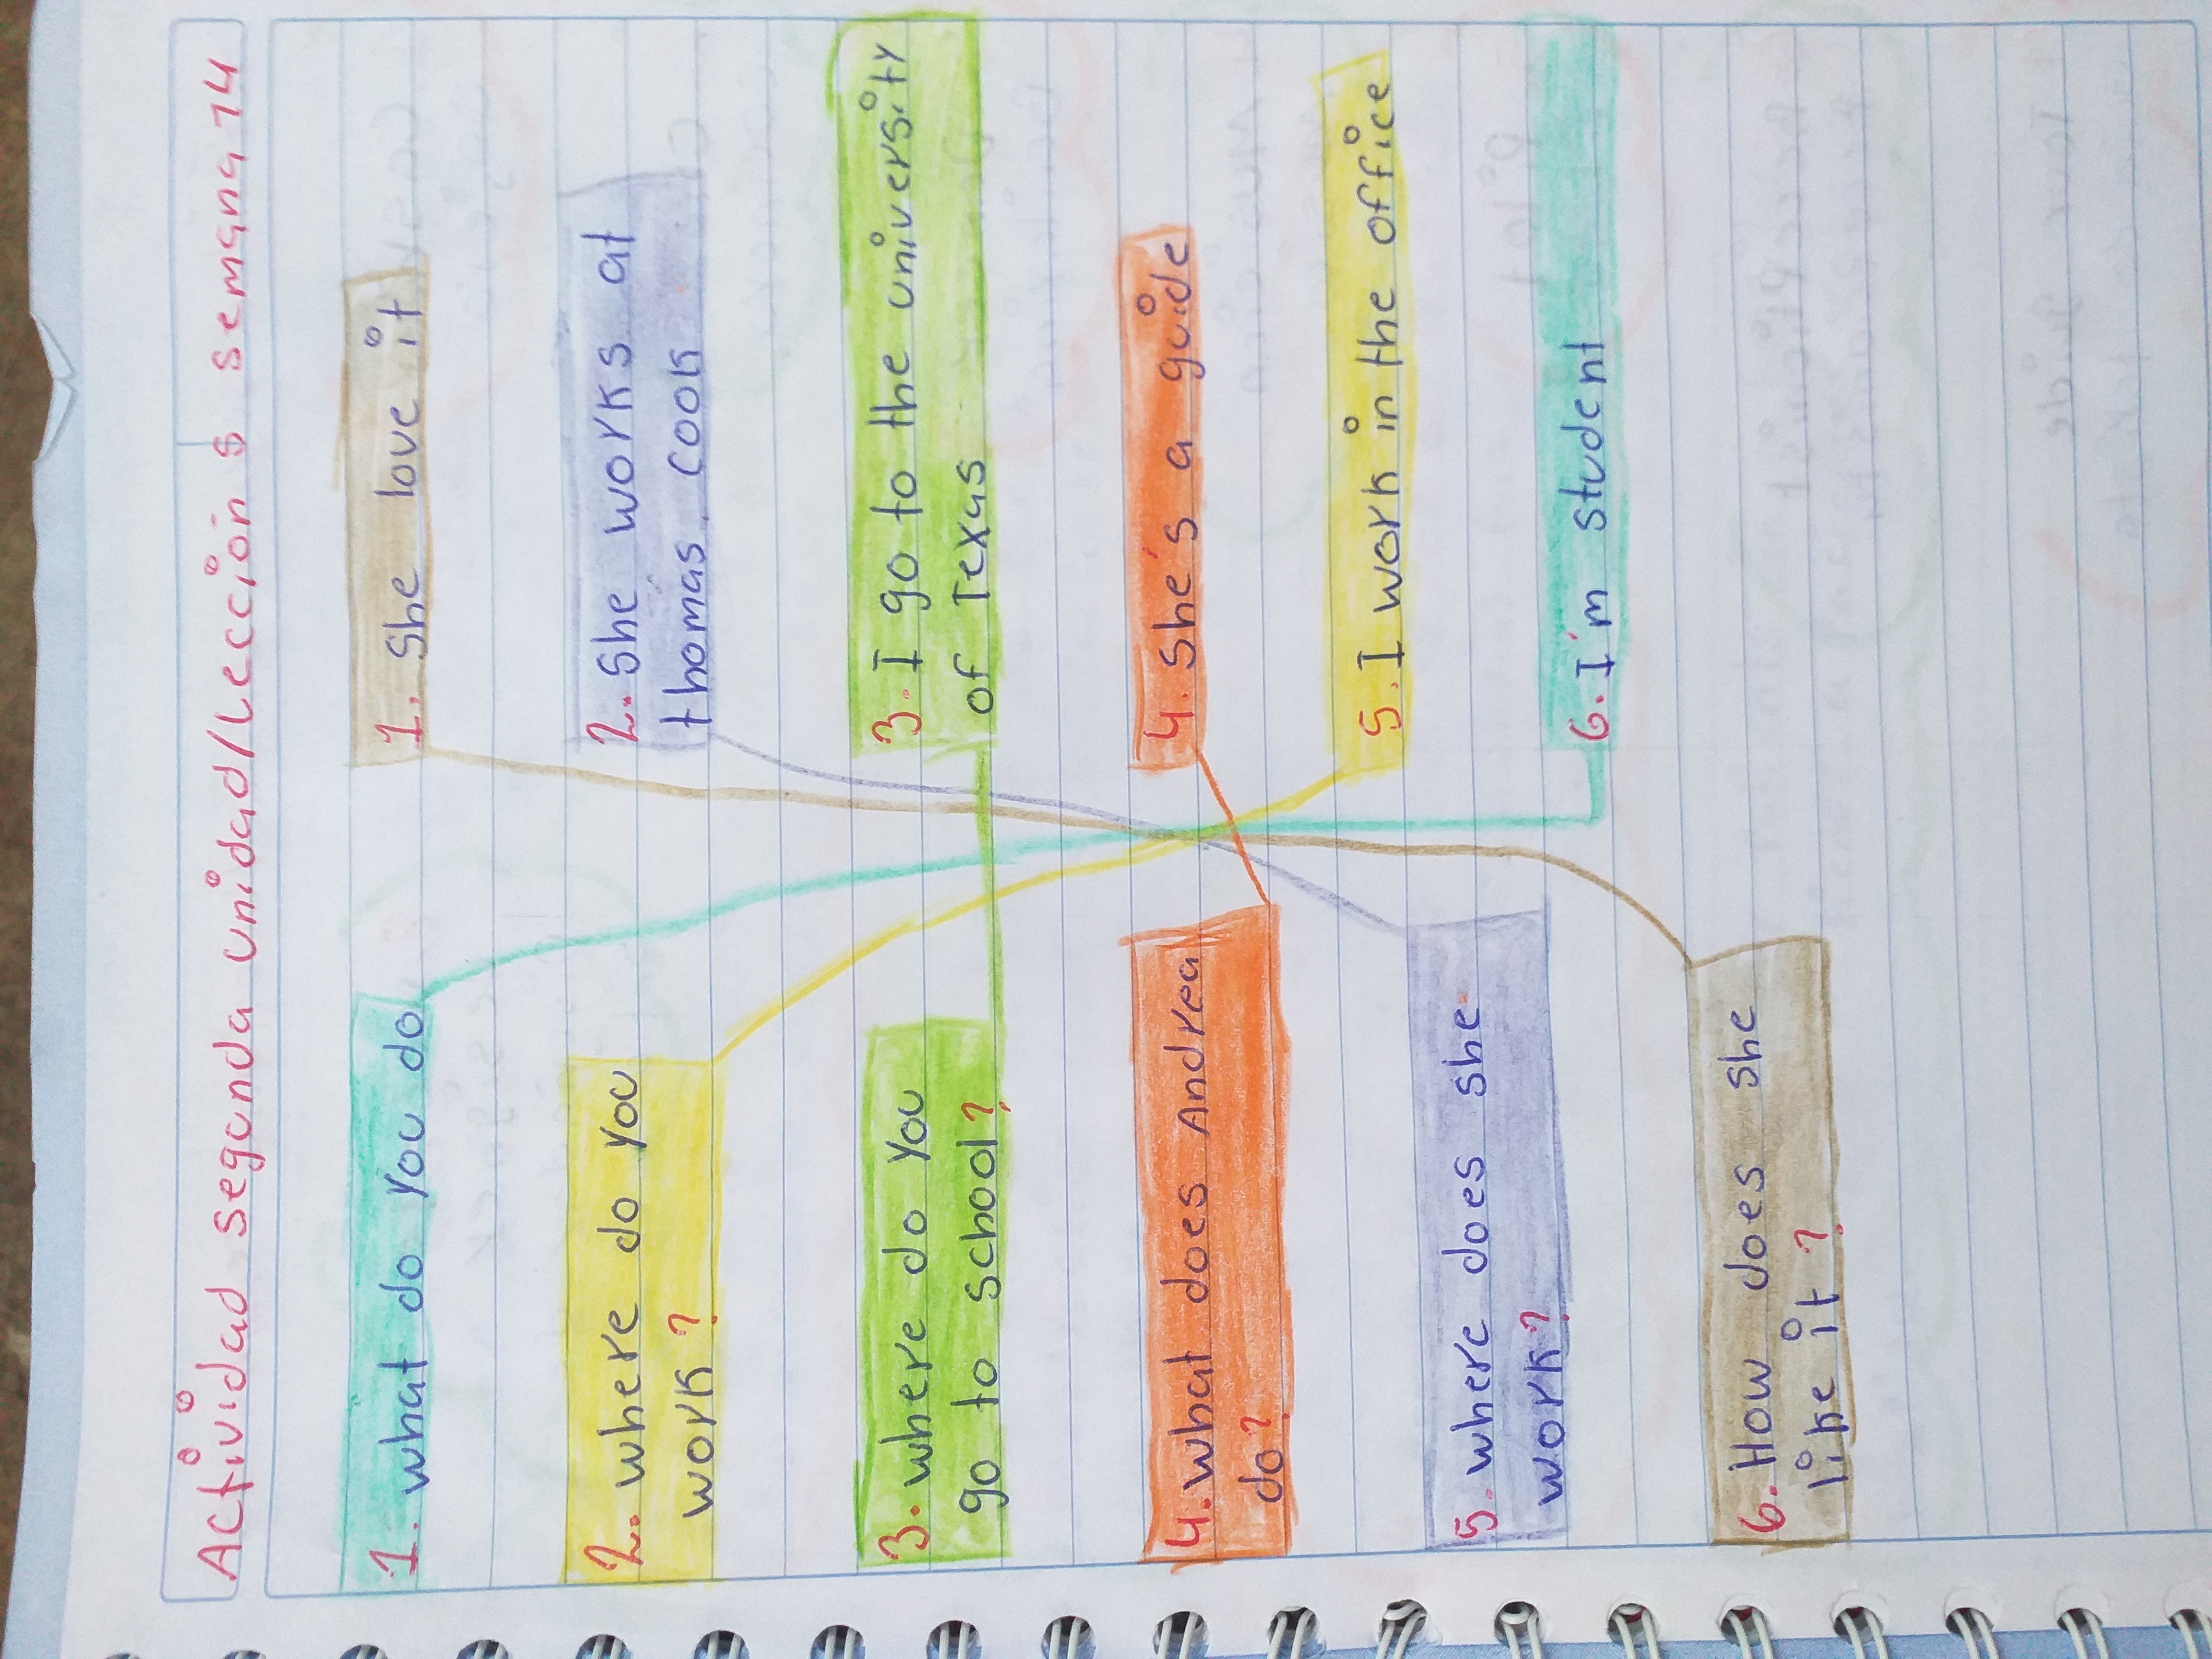 Actividad segunda unidad/Lección 5 semana 14
1. what do you do
2. where do you
work?
3. where do you
go to school?
4. what does Andrea
do?
5. where does she
work?
6. How does she
like it?
1. She love it
2. She works at
thomas, cook
3. I go to the university
of Texas
4. She's a guide
5. I work in the office
6. I'm student